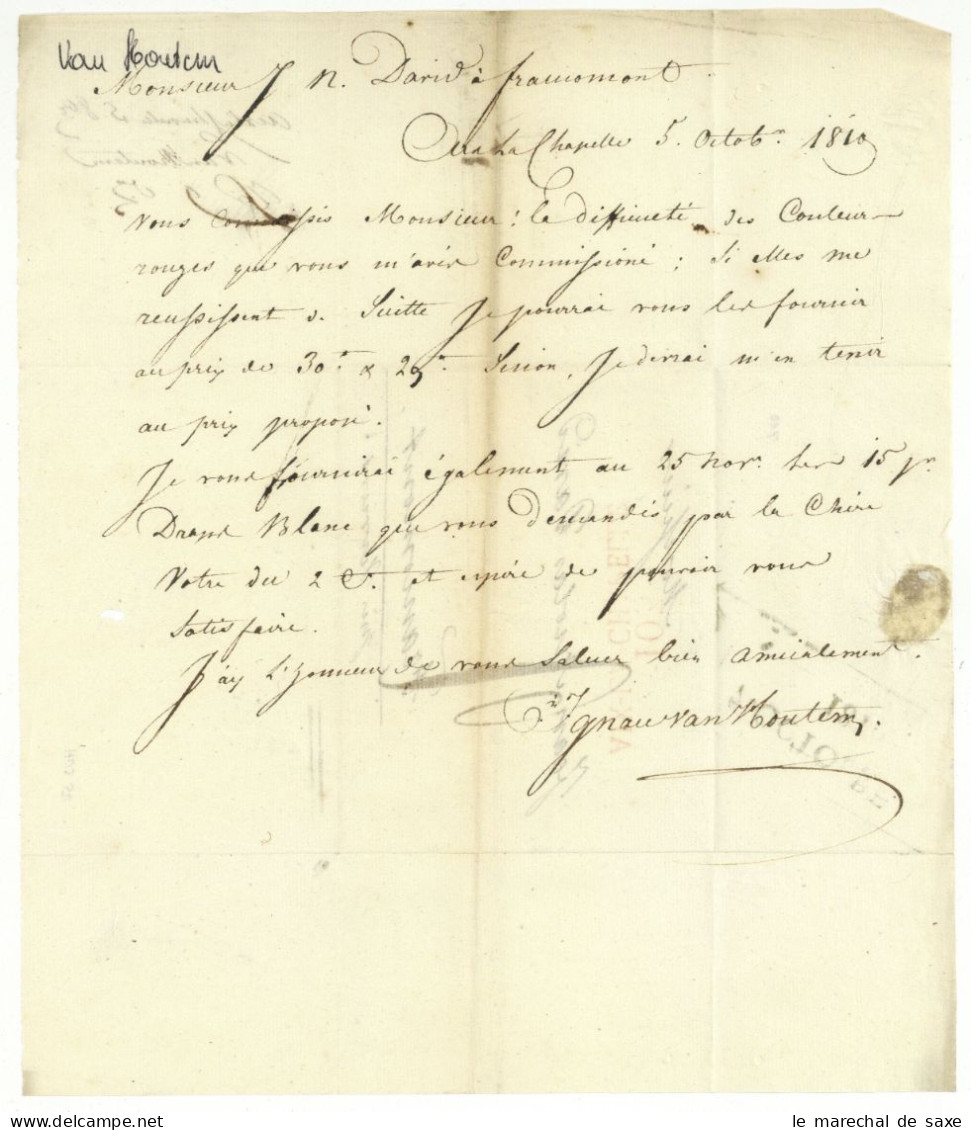 Van Houtem
Monsieur J N. David à framomont.
Aix La Chapelle 5. Octobr. 1810
Vous Connoissés Monsieur! la difficueté des Couleur
rouges que vous m'avés Commissioné; Si elles me
reussissent d. Suitte Je pourrai vous les fournir
au prix de 30.s & 29.s Sinon, Je devrai m'en tenir
au prix proposé.
Je vous fournirai également au 25 novr. les 15 ps.
Draps Blanc que vous demandés par la Chère
Votre du 2 Ct. et espére de pouvoir vous
satisfaire.
J'aÿ l'honneur de vous saluer bien amicalement.
Ignace van Houtem,
le marechal de saxe